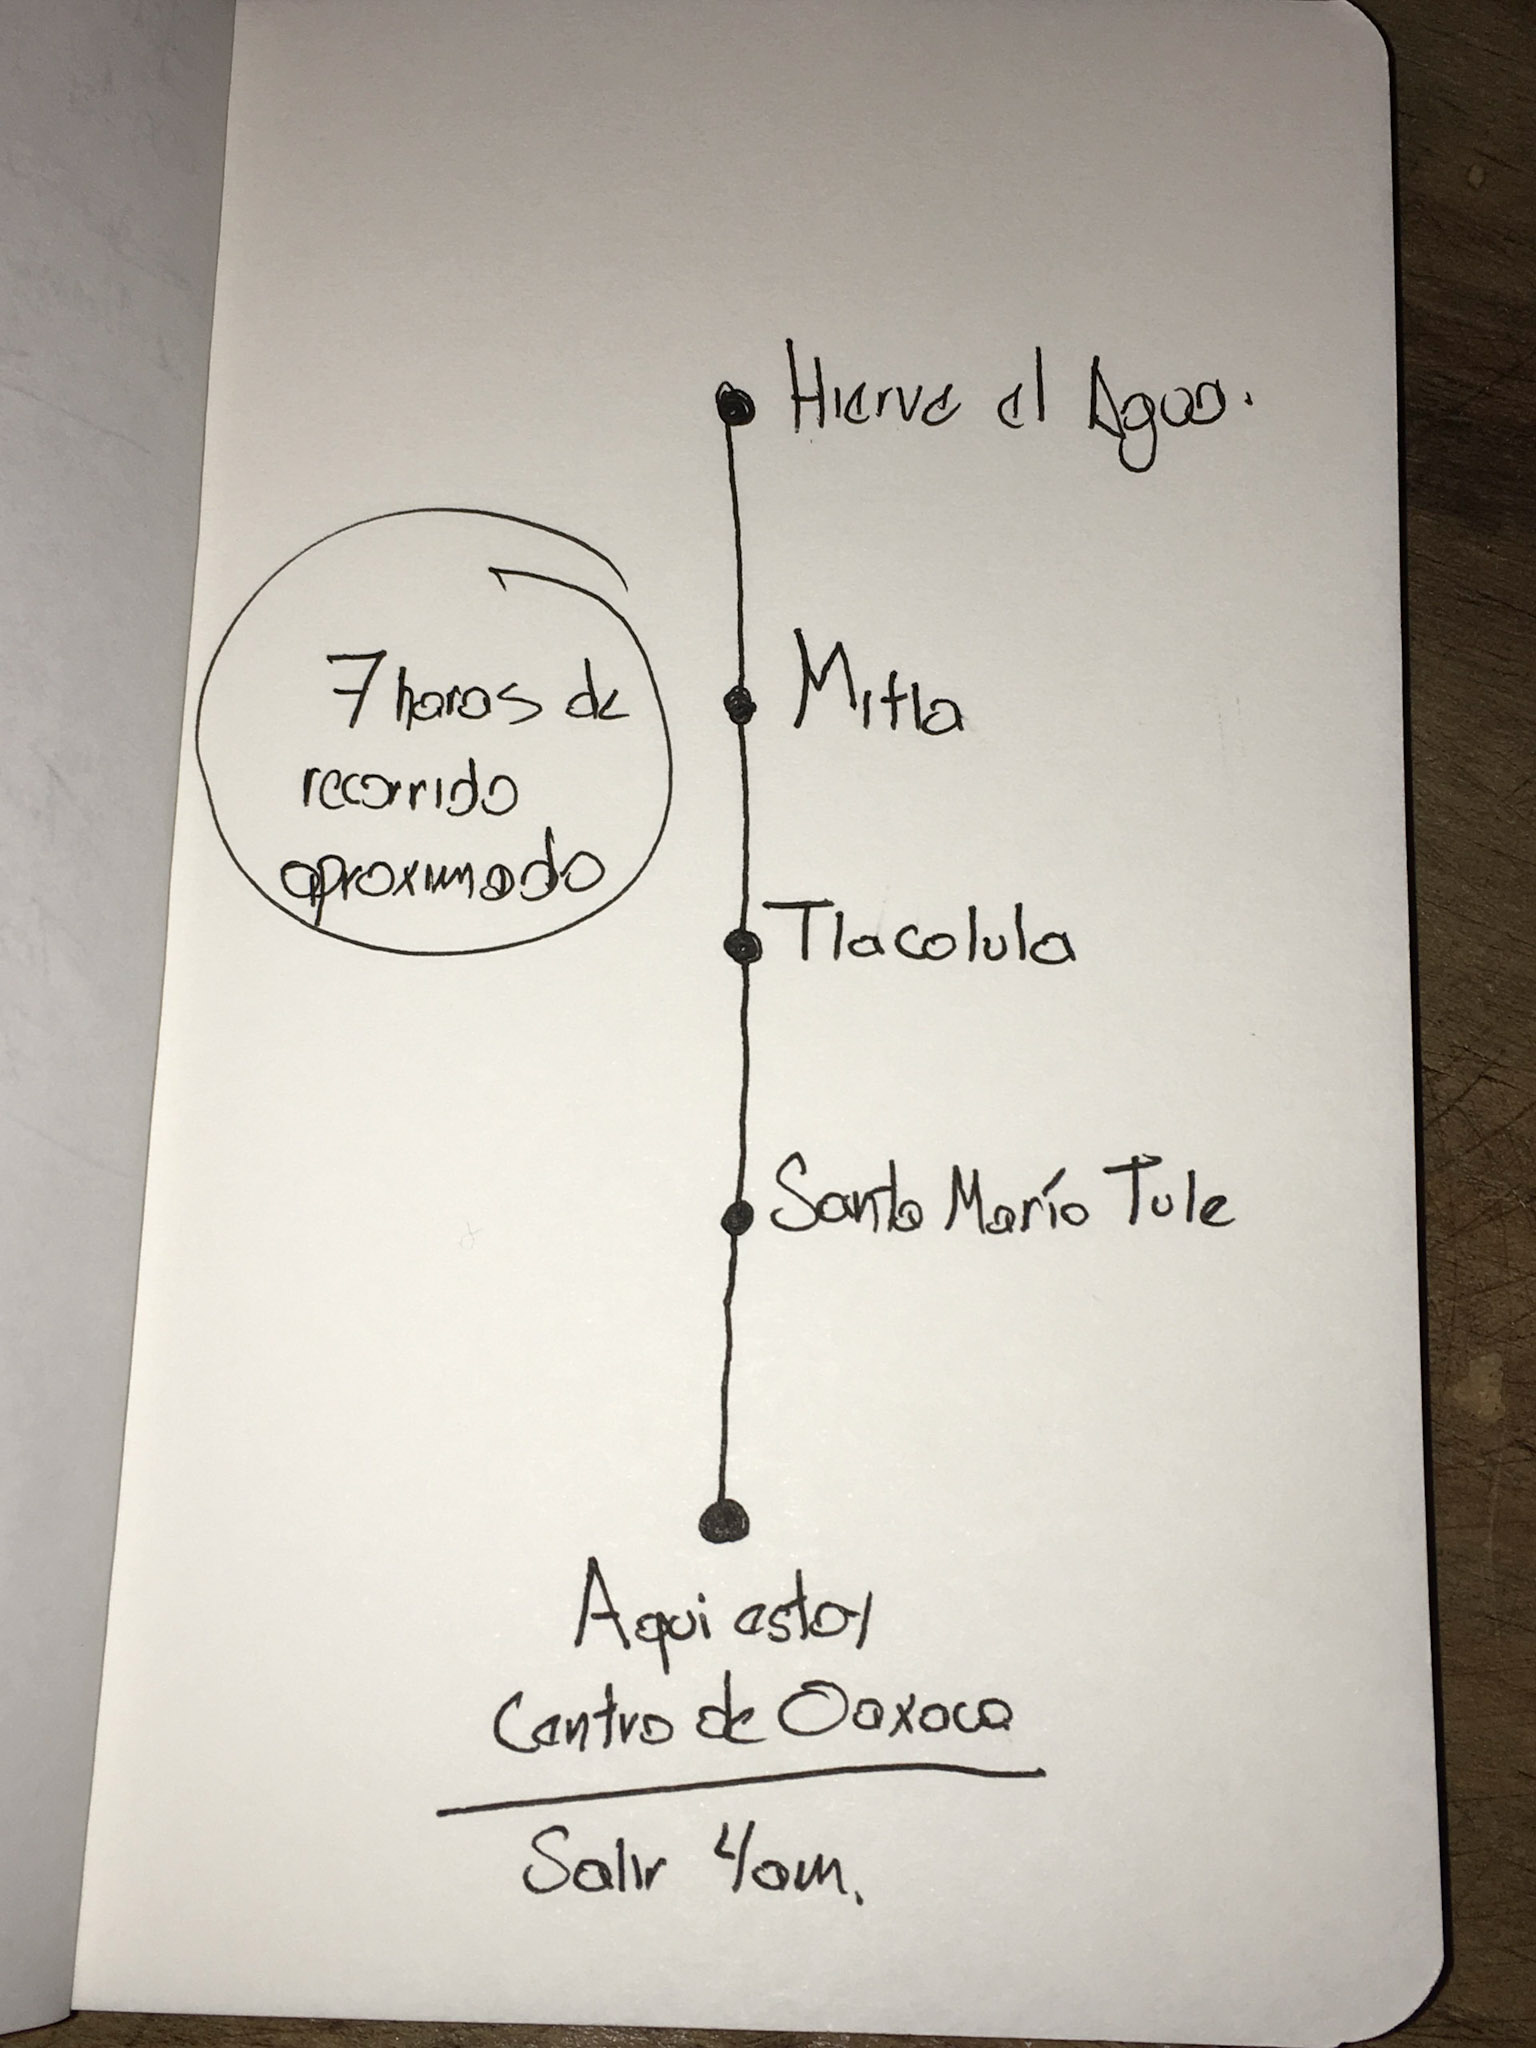 Hierve el Agua.
7 horas de
recorrido
aproximado
Mitla
Tlacolula
Santa María Tule
Aqui estoy
Centro de Oaxaca
Salir 4am.